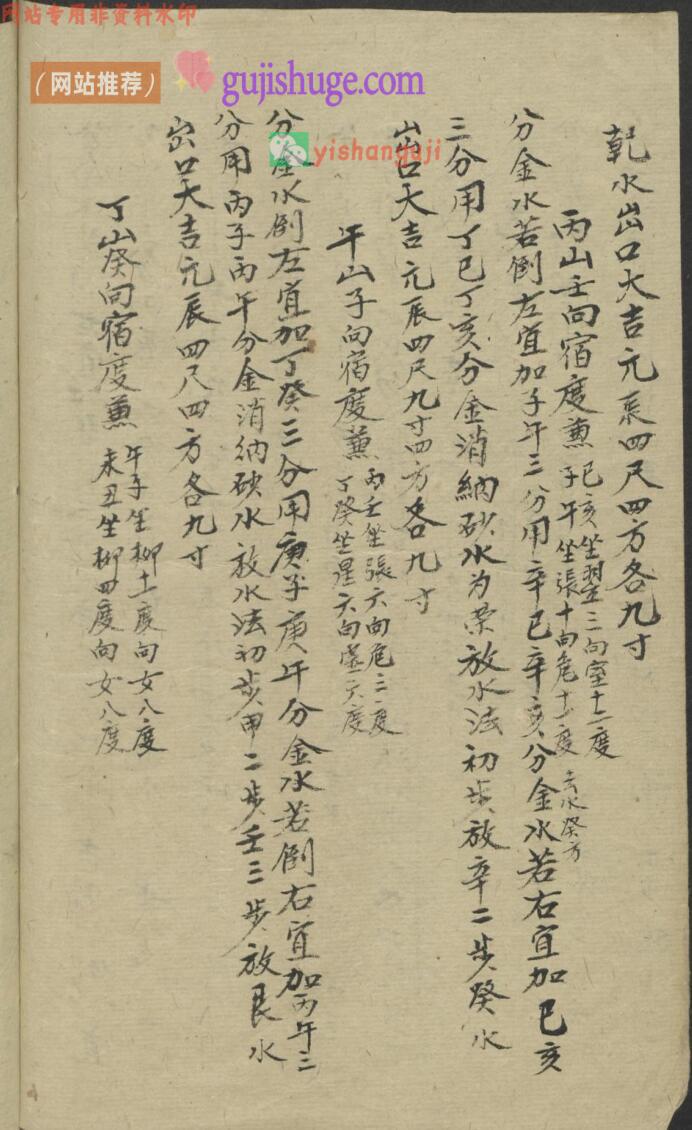 网站专用非资料水印
（网站推荐）
gujishuge.com
yishanguji
乾水出口大吉元辰四尺四方各九寸
丙山壬向宿度兼巳亥坐翌三向室十二度
子午坐張十向危十二度 去水癸方
分金水若倒左宜加子午三分用辛巳辛亥分金水若右宜加巳亥
三分用丁巳丁亥分金消納砂水为荣放水法初步放辛二步癸水
出口大吉元辰四尺九寸四方各九寸
午山子向宿度兼丙壬坐張六向危三度
丁癸坐星六向虛六度
分金水倒左宜加丁癸三分用庚子庚午分金水若倒右宜加丙午三
分用丙子丙午分金消納砂水放水法初步甲二步壬三步放艮水
出口大吉元辰四尺四方各九寸
丁山癸向宿度兼午子坐柳十一度向女八度
未丑坐柳四度向女八度